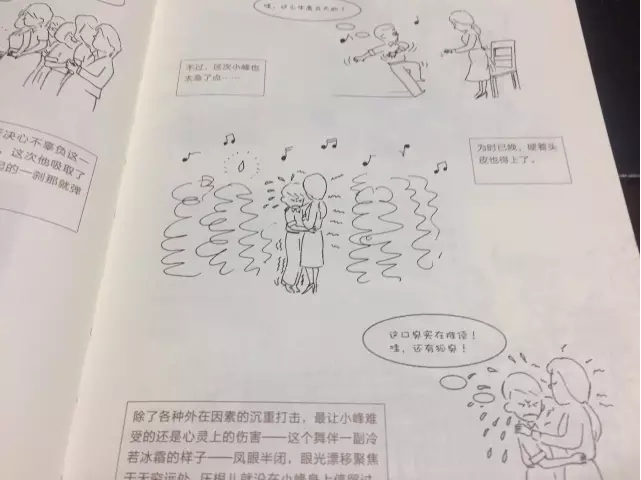 决心不辜负这一
，这次他吸取了
的一刹那就弹
不过，这次小峰也
太急了点……
为时已晚，硬着头
皮也得上了。
这口臭实在难顶！
哇，还有狐臭！
除了各种外在因素的沉重打击，最让小峰难
受的还是心灵上的伤害——这个舞伴一副冷
若冰霜的样子——凤眼半闭，眼光漂移聚焦
于天空远处，压根儿就没在小峰身上停留过